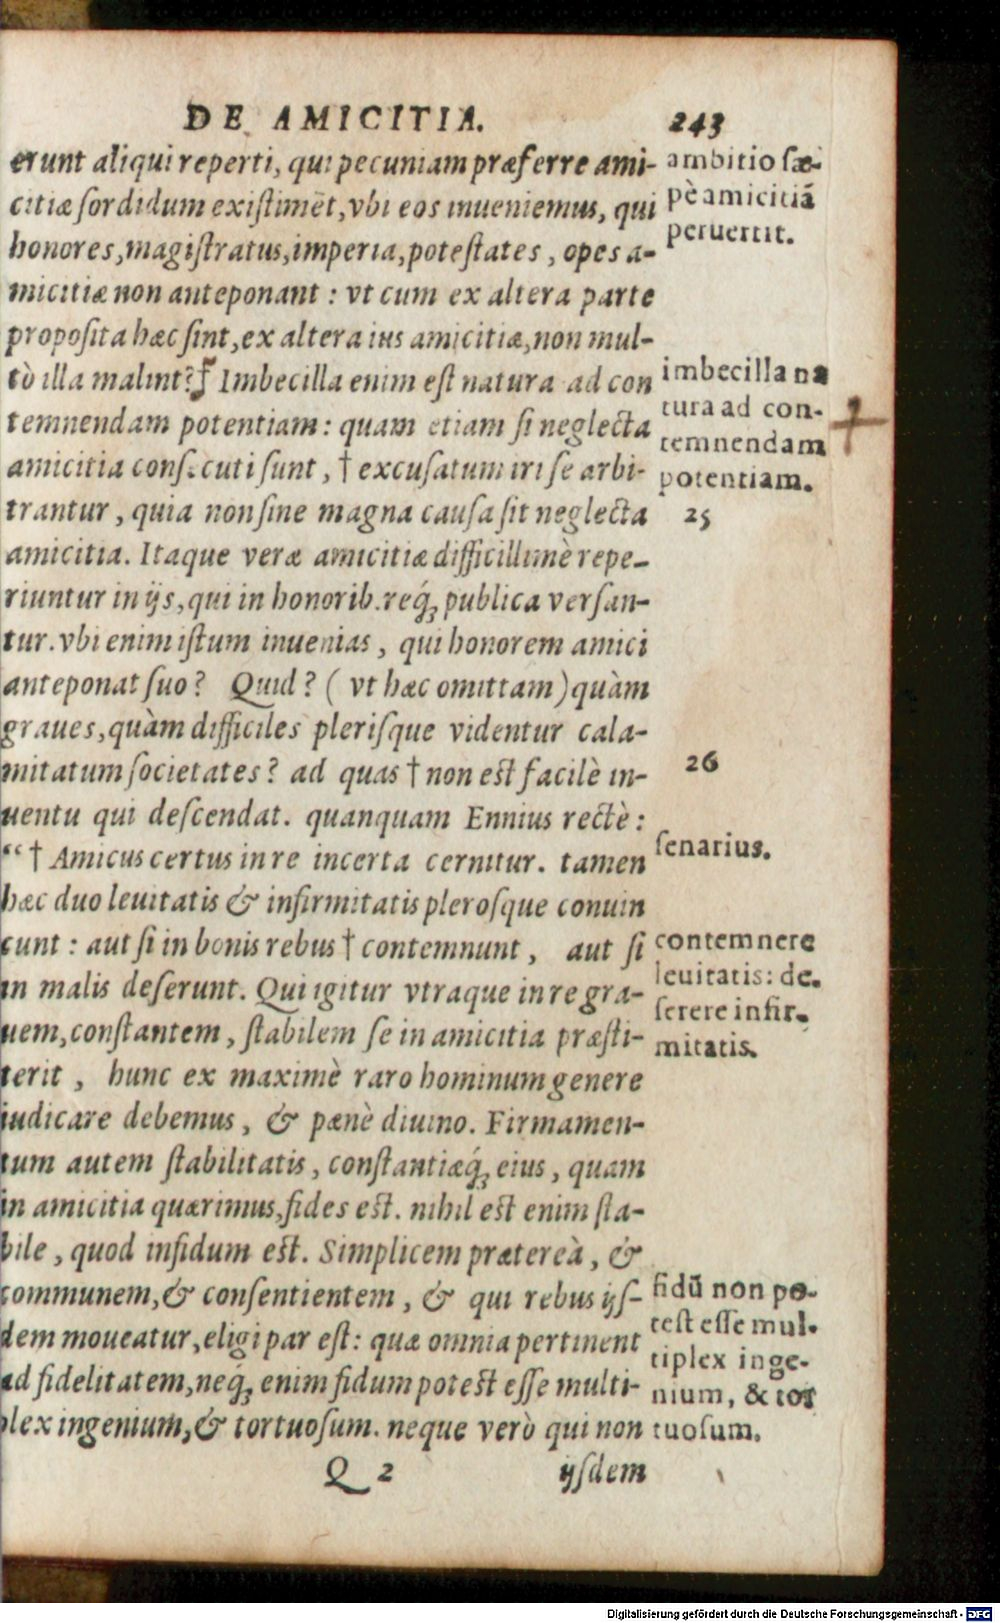 DE AMICITIA. 243
erunt aliqui reperti, qui pecuniam præferre ami-
citiæ sordidum existimēt, vbi eos inueniemus, qui
honores, magistratus, imperia, potestates, opes a-
micitiæ non anteponant: vt cum ex altera parte
proposita hæc sint, ex altera ius amicitiæ, non mul-
tò illa malint? Imbecilla enim est natura ad con
temnendam potentiam: quam etiam si neglecta
amicitia consecuti sunt, † excusatum iri se arbi-
trantur, quia non sine magna causa sit neglecta
amicitia. Itaque veræ amicitiæ difficillimè repe-
riuntur in ijs, qui in honorib. req́; publica versan-
tur. vbi enim istum inuenias, qui honorem amici
anteponat suo? Quid? (vt hæc omittam) quàm
graues, quàm difficiles plerisque videntur cala-
mitatum societates? ad quas † non est facilè in-
uentu qui descendat. quanquam Ennius rectè:
“ † Amicus certus in re incerta cernitur. tamen
hæc duo leuitatis & infirmitatis plerosque conuin
cunt: aut si in bonis rebus † contemnunt, aut si
in malis deserunt. Qui igitur vtraque in re gra-
uem, constantem, stabilem se in amicitia præsti-
terit, hunc ex maximè raro hominum genere
iudicare debemus, & pænè diuino. Firmamen-
tum autem stabilitatis, constantiæq́; eius, quam
in amicitia quærimus, fides est. nihil est enim sta-
bile, quod infidum est. Simplicem prætereà, &
communem, & consentientem, & qui rebus ijs-
dem moueatur, eligi par est: quæ omnia pertinent
ad fidelitatem, neq́; enim fidum potest esse multi-
plex ingenium, & tortuosum. neque verò qui non
Q 2 ijsdem
ambitio sæ-
pè amicitiā
peruertit.
imbecilla na
tura ad con-
temnendam
potentiam.
25
26
senarius.
contemnere
leuitatis: de-
serere infir-
mitatis.
fidū non po-
test esse mul-
tiplex inge-
nium, & tor
tuosum.
Digitalisierung gefördert durch die Deutsche Forschungsgemeinschaft - DFG